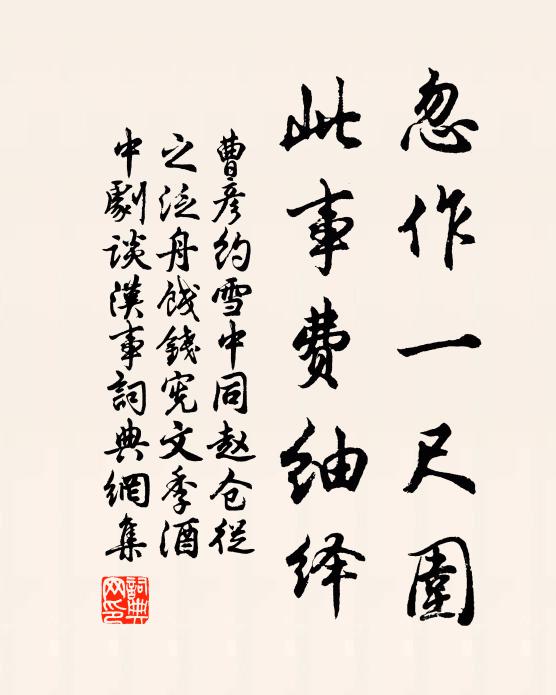 忽作一尺圍
此事費紬绎
曹彦約雪中同赵仓從
之泛舟餞錢宪文季酒
中劇談漢事詞典網集